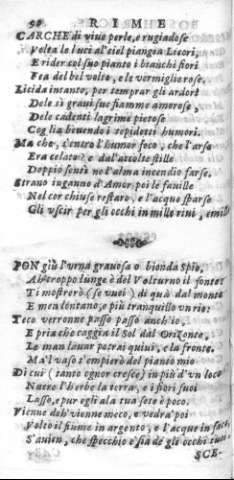 58 RIME
CARCHE di viue perle, e rugiadose
Volta le luci al ciel piangea Licori,
E rider col suo pianto i bianchi fiori
Fea del bel volto, e le vermiglie rose,
Licida intanto, per temprar gli ardori
De le sì graui sue fiamme amorose,
De le cadenti lagrime pietose
Cogliea beuendo i tepidetti humori.
Ma che, ch'entro l'humor foco, che l'arse
Era celato? e dal'accolte stille
Doppio sentì ne l'alma incendio farse.
Strano inganno d'Amor, poi le fauille
Nel cor chiuse restaro, e l'acque sparse
Gli vscir per gli occhi in mille riui, e mille
PON giù l'vrna grauosa o bionda Spio,
Ahi troppo lunge è del Volturno il fonte:
Ti mostrerò (se vuoi) di quà dal monte
E men lontano, e più tranquillo vn rio:
Teco verronne passo passo anch'io,
E pria che caggia il Sol dal Orizonte,
Le man lauar potrai quiui, e la fronte.
Ma'l vaso s'empierò del pianto mio
Di cui (tanto ognor cresce) in più d'vn loco
Nacre l'herbe la terra, e i fiori suoi
Lasso, e pur egli a la tua sete è poco.
Vienne deh'vienne meco, e vedrai poi
Volto il fiume in argento, e l'acque in
S'auien, che specchio e' sia de gli occhi tuoi
SCE-